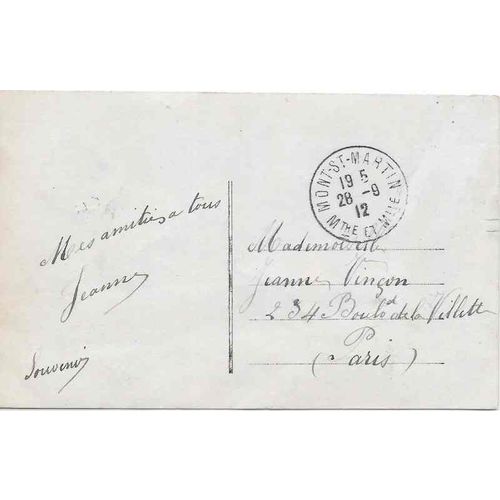 Mes amitiés a tous
Jeanne
Souvenir
MONT-ST-MARTIN
19 5
28 -9
12
MTHE ET MLLE
Mademoiselle
Jeanne Vinçon
234 Boulд de la Villette
(Paris)